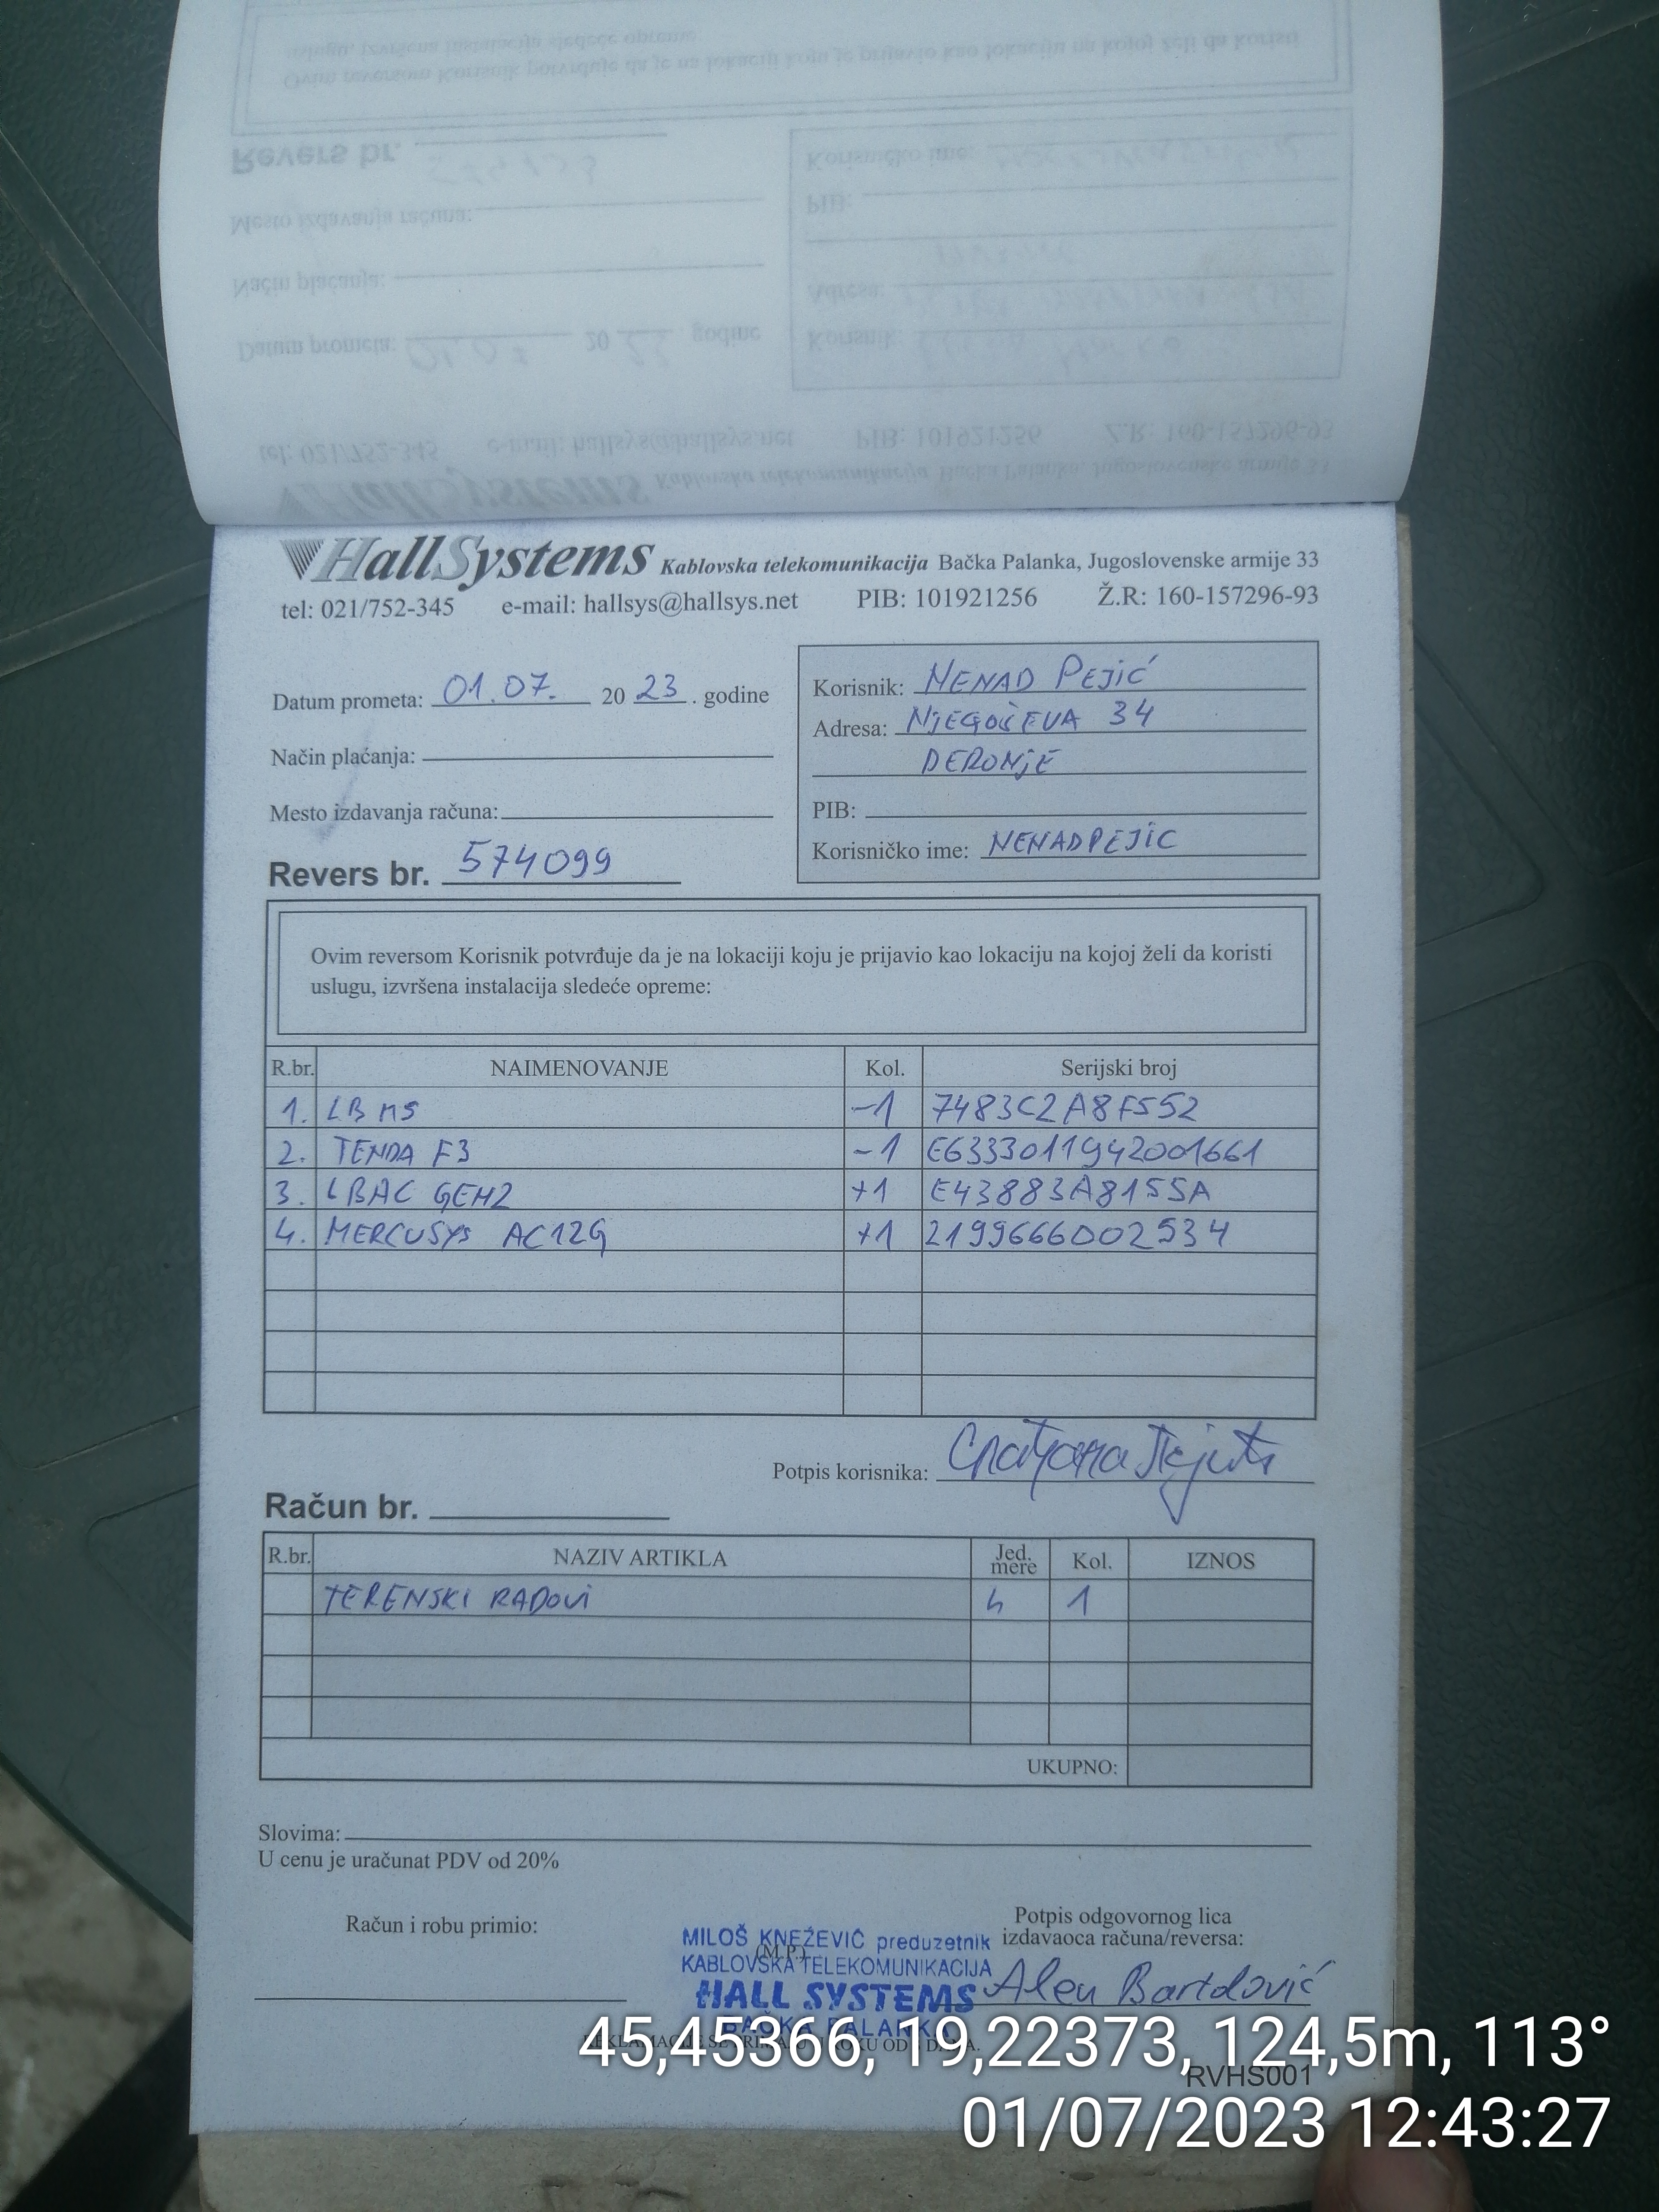 HallSystems Kablovska telekomunikacija Bačka Palanka, Jugoslovenske armije 33
tel: 021/752-345 e-mail: hallsys@hallsys.net PIB: 101921256 Ž.R: 160-157296-93
Datum prometa: 01.07. 20 23 . godine
Način plaćanja:
Mesto izdavanja računa:
Revers br. 574099
Korisnik: NENAD PEJIĆ
Adresa: NJEGOŠEVA 34
DERONJE
PIB:
Korisničko ime: NENADPEJIC
Ovim reversom Korisnik potvrđuje da je na lokaciji koju je prijavio kao lokaciju na kojoj želi da koristi
uslugu, izvršena instalacija sledeće opreme:
R.br. NAIMENOVANJE Kol. Serijski broj
1. LB M5 -1 7483C2A8F552
2. TENDA F3 -1 E6333011942001661
3. LBAC GEN2 +1 E43883A8155A
4. MERCUSYS AC12G +1 2199666002534
Potpis korisnika:
Račun br.
R.br. NAZIV ARTIKLA Jed. mere Kol. IZNOS
TERENSKI RADOVI h 1
UKUPNO:
Slovima:
U cenu je uračunat PDV od 20%
Račun i robu primio:
(M.P.)
MILOŠ KNEŽEVIĆ preduzetnik
KABLOVSKA TELEKOMUNIKACIJA
HALL SYSTEMS
BAČKA PALANKA
Potpis odgovornog lica
izdavaoca računa/reversa:
Alen Bartolović
RVHS001
45,45366, 19,22373, 124,5m, 113°
01/07/2023 12:43:27